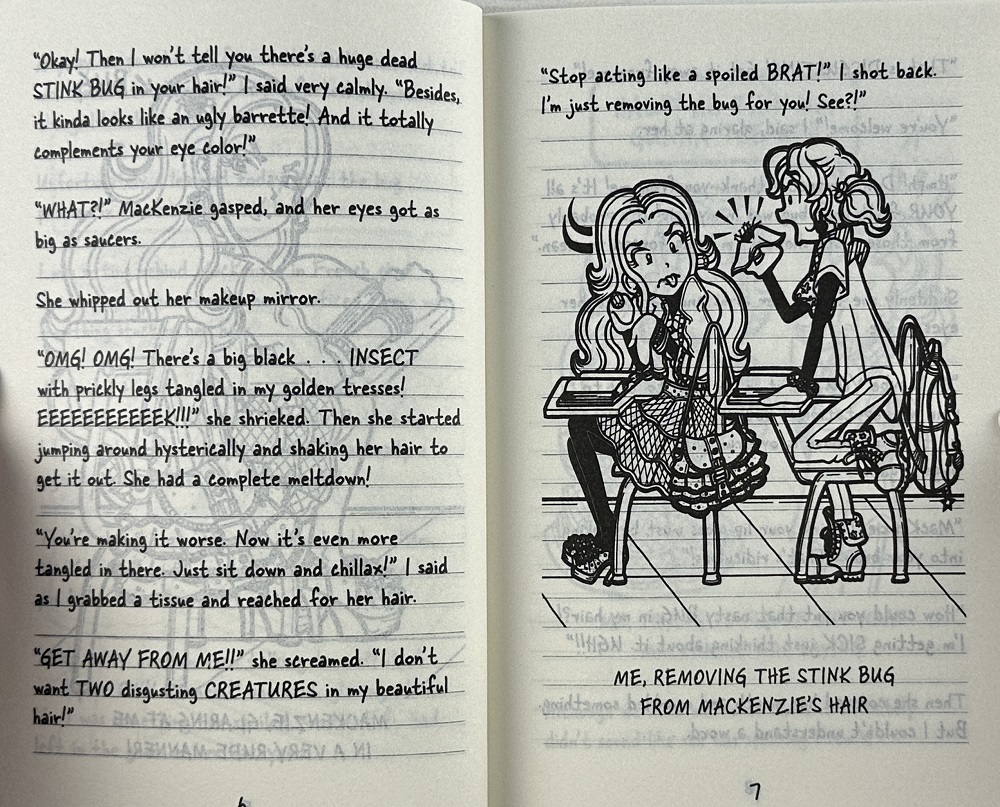 “Okay! Then I won’t tell you there’s a huge dead
STINK BUG in your hair!” I said very calmly. “Besides,
it kinda looks like an ugly barrette! And it totally
complements your eye color!”
“WHAT?!” MacKenzie gasped, and her eyes got as
big as saucers.
She whipped out her makeup mirror.
“OMG! OMG! There’s a big black . . . INSECT
with prickly legs tangled in my golden tresses!
EEEEEEEEEEEK!!!” she shrieked. Then she started
jumping around hysterically and shaking her hair to
get it out. She had a complete meltdown!
“You’re making it worse. Now it’s even more
tangled in there. Just sit down and chillax!” I said
as I grabbed a tissue and reached for her hair.
“GET AWAY FROM ME!!” she screamed. “I don’t
want TWO disgusting CREATURES in my beautiful
hair!”
6
“Stop acting like a spoiled BRAT!” I shot back.
“I’m just removing the bug for you! See?!”
ME, REMOVING THE STINK BUG
FROM MACKENZIE’S HAIR
7